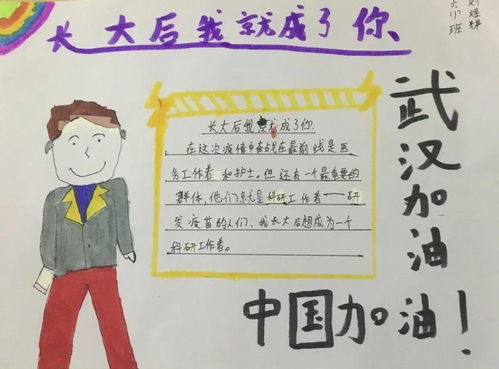 长大后我就成了你
长大后我就成了你
在这次疫情中奋战在最前线是医
务工作者和护士。但还有一个最重要的
群体，他们就是科研工作者——研
发疫苗的人们，我长大后想成为一个
科研工作者。
武汉加油
中国加油！